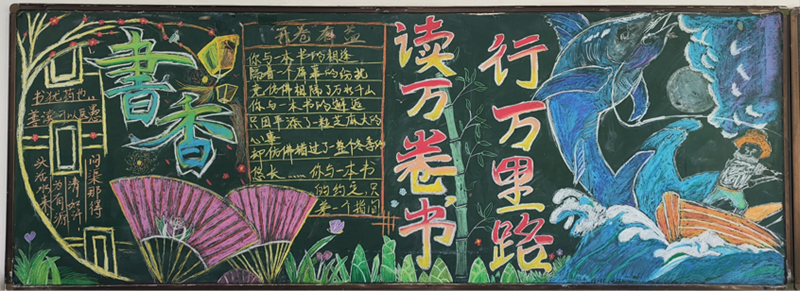 書香
书犹药也，
善读可以医愚
问渠那得
清如许，
为有源
头活水来
开卷有益
你与一本书的相逢
隔着一个屏幕的纷扰
竟仿佛相隔了万水千山
你与一本书的邂逅
只因平添了一粒芝麻大的
心事
却仿佛错过了整个冬季的
悠长……你与一本书
的约定，只
差一个指间
读万卷书
行万里路